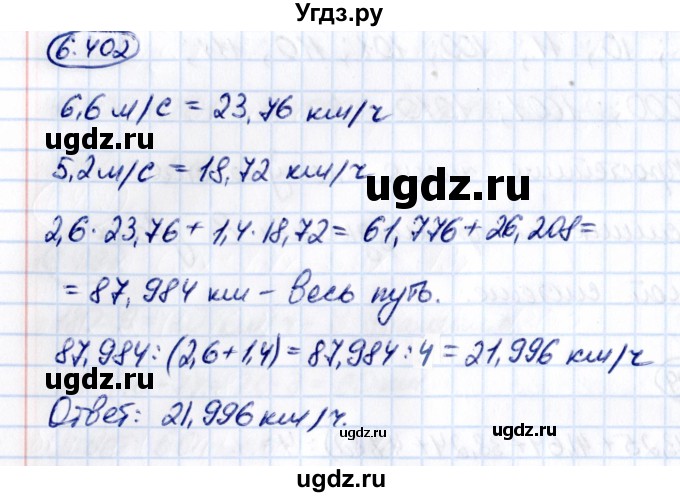 Угдз.ру
6.402
6,6 м/с = 23,76 км/ч
ugdz.ru
5,2 м/с = 18,72 км/ч
ugdz.ru
2,6 · 23,76 + 1,4 · 18,72 = 61,776 + 26,208 =
= 87,984 км – весь путь.
ugdz.ru
87,984 : (2,6 + 1,4) = 87,984 : 4 = 21,996 км/ч
ugdz.ru
ugdz.ru
Ответ: 21,996 км/ч.
ugdz.ru
ugdz.ru
ugdz.ru